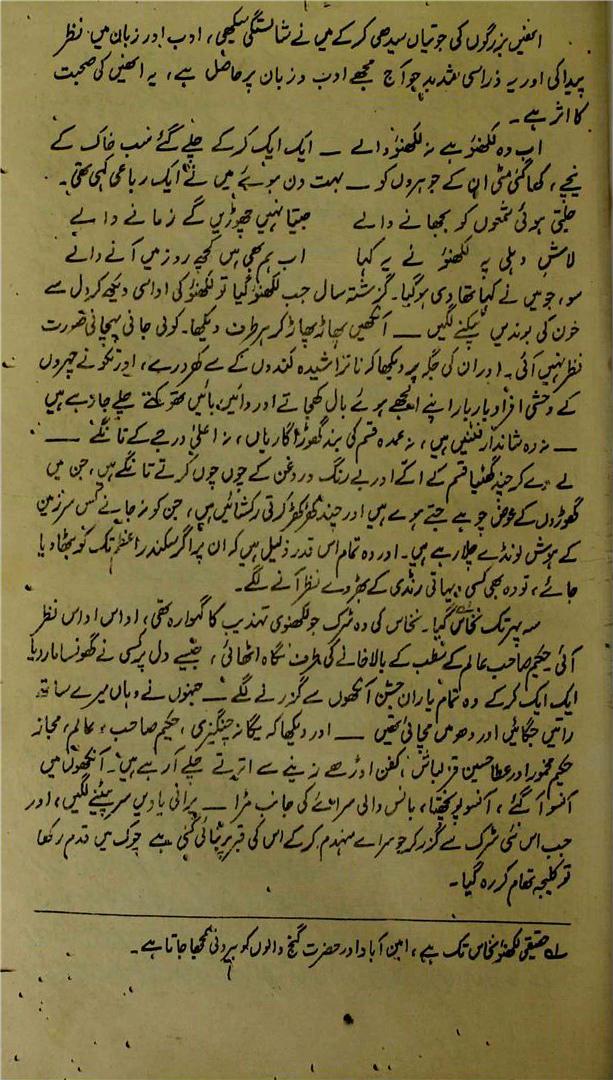 انھیں بزرگوں کی جوتیاں سیدھی کر کے میں نے شائستگی سیکھی، ادب اور زبان میں نظر
پیدا کی اور یہ ذراسی شُد بُد جو آج مجھے ادب و زبان پر حاصل ہے، یہ انھیں کی صحبت
کا اثر ہے۔
اب وہ لکھنؤ ہے نہ لکھنؤ والے — ایک ایک کر کے چلے گئے سب خاک کے
نیچے، کھا گئی مٹی اُن کے جوہروں کو — بہت دن ہوئے میں نے ایک رباعی کہی تھی۔
جلتی ہوئی شمعوں کو بجھانے والے جیتا نہیں چھوڑیں گے زمانے والے
لاشِ دہلی پہ لکھنؤ نے یہ کہا اب ہم بھی ہیں کچھ روز میں آنے والے
سو، جو میں نے کہا تھا وہی ہو گیا۔ گزشتہ سال جب لکھنؤ گیا تو لکھنؤ کی اداسی دیکھ کر دل سے
خون کی بوندیں ٹپکنے لگیں — آنکھیں پھاڑ پھاڑ کر ہر طرف دیکھا۔ کوئی جانی پہچانی صورت
نظر نہیں آئی۔ اور ان کی جگہ پر دیکھا کہ ناتراشیدہ کندوں کے سے کھردرے، اور نکونے چہروں
کے وحشی افراد بار بار اپنے الجھے ہوئے بال کھجاتے اور دائیں بائیں تھوکتے چلے جا رہے ہیں
— نہ وہ شاندار فٹنیں ہیں، نہ عمدہ قسم کی بند گھوڑا گاڑیاں، نہ اعلیٰ درجے کے تانگے —
لے دے کر چند گھٹیا قسم کے اکّے اور بے رنگ و روغن کے چوں چوں کرتے تانگے ہیں، جن میں
گھوڑوں کے عوض چوہے جتے ہوئے ہیں اور چند کھڑ کھڑ کرتی رکشائیں ہیں، جن کو نہ جانے کس سرزمین
کے بے ہوش لونڈے چلا رہے ہیں۔ اور وہ تمام اس قدر ذلیل ہیں کہ ان پر اگر سکندر اعظم تک کو بٹھا دیا
جائے، تو وہ بھی کسی دیہاتی رنڈی کے بھڑوے نظر آنے لگے۔
سہ پہر تک نخاس ؎۱ گیا۔ نخاس کی وہ سڑک جو لکھنوی تہذیب کا گہوارہ تھی، اداس اداس نظر
آئی حکیم صاحب عالم کے مطب کے بالاخانے کی طرف نگاہ اٹھائی، جیسے دل پر کسی نے گھونسا مار دیا
ایک ایک کر کے وہ تمام یارانِ جشن آنکھوں سے گزرنے لگے — جنہوں نے وہاں میرے ساتھ
راتیں جگائیں اور دھومیں مچائی تھیں — اور دیکھا کہ یگانہ چنگیزی، حکیم صاحب عالم، مجاز
حکیم مخمور اور عطا حسین قزلباش، کفن اوڑھے زینے سے اترتے چلے آ رہے ہیں۔ آنکھوں میں
آنسو آگئے، آنسو پونچھتا، بانس والی سرائے کی جانب مڑا — پرانی یادیں سر پیٹنے لگیں، اور
جب اس نئی سڑک سے گزر کر جو سرائے منہدم کر کے اس کی قبر پر بنائی گئی ہے چوک میں قدم رکھا
تو کلیجہ تھام کر رہ گیا۔
؎۱ حقیقی لکھنؤ نخاس تک ہے، امین آباد اور حضرت گنج والوں کو بیرونی سمجھا جاتا ہے۔